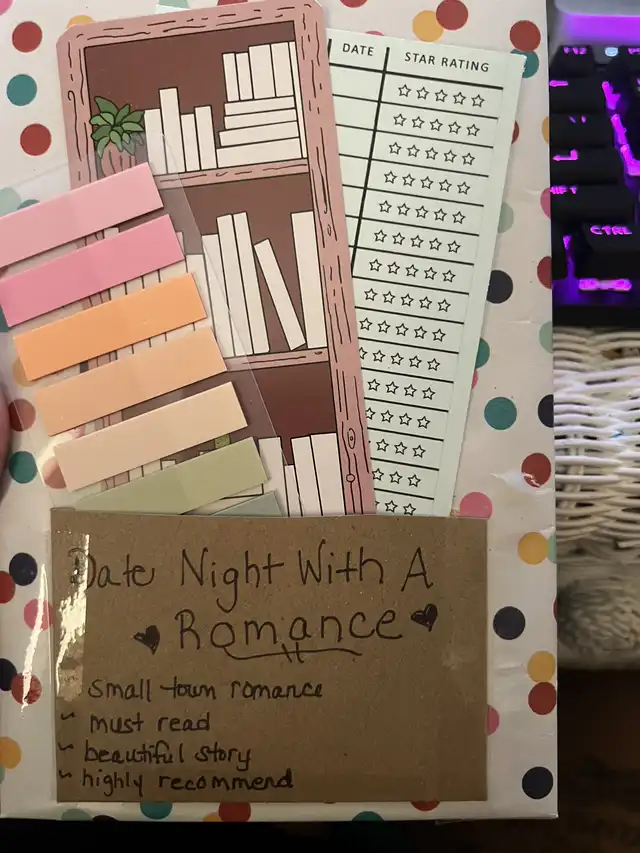 DATE STAR RATING
F12
CTRL
Date Night With A
Romance
small town romance
~ must read
~ beautiful story
~ highly recommend